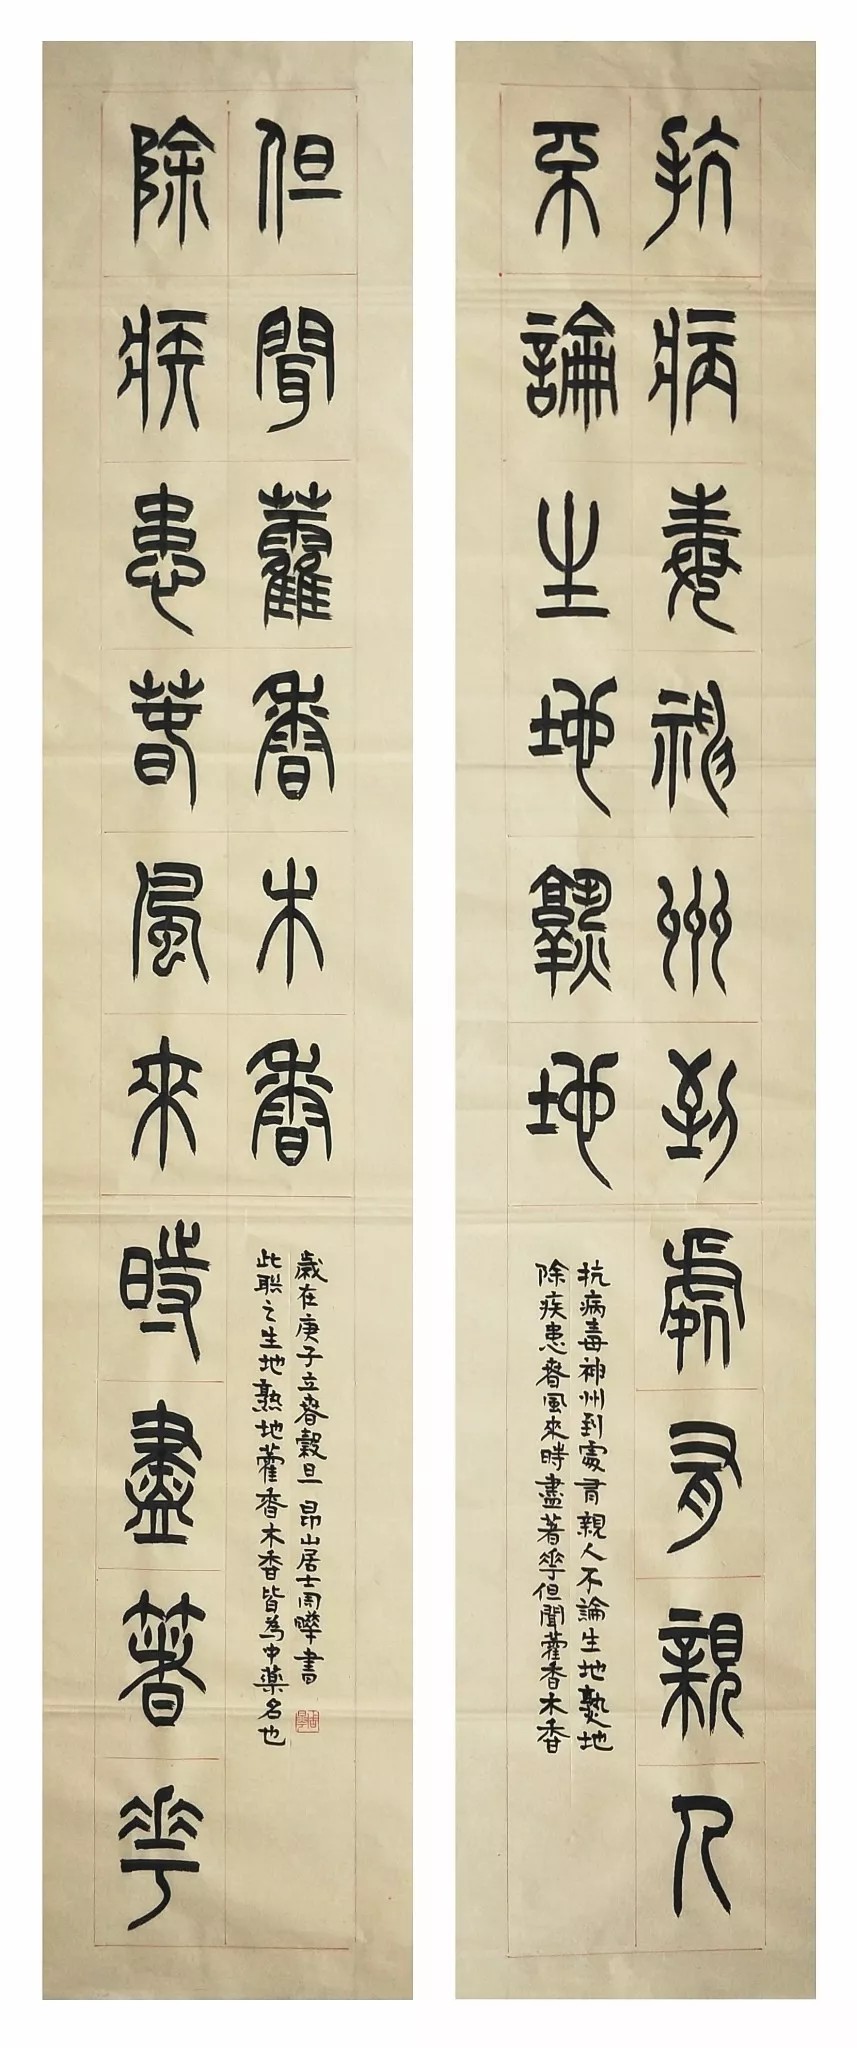 抗病毒神州到處有親人
不論生地熟地
抗病毒神州到處有親人不論生地熟地
除疾患春風來時盡著花但聞藿香木香
除疾患春風來時盡著花
但聞藿香木香
歲在庚子立春穀旦 昂山居士周曄書
此聯之生地熟地藿香木香皆為中藥名也